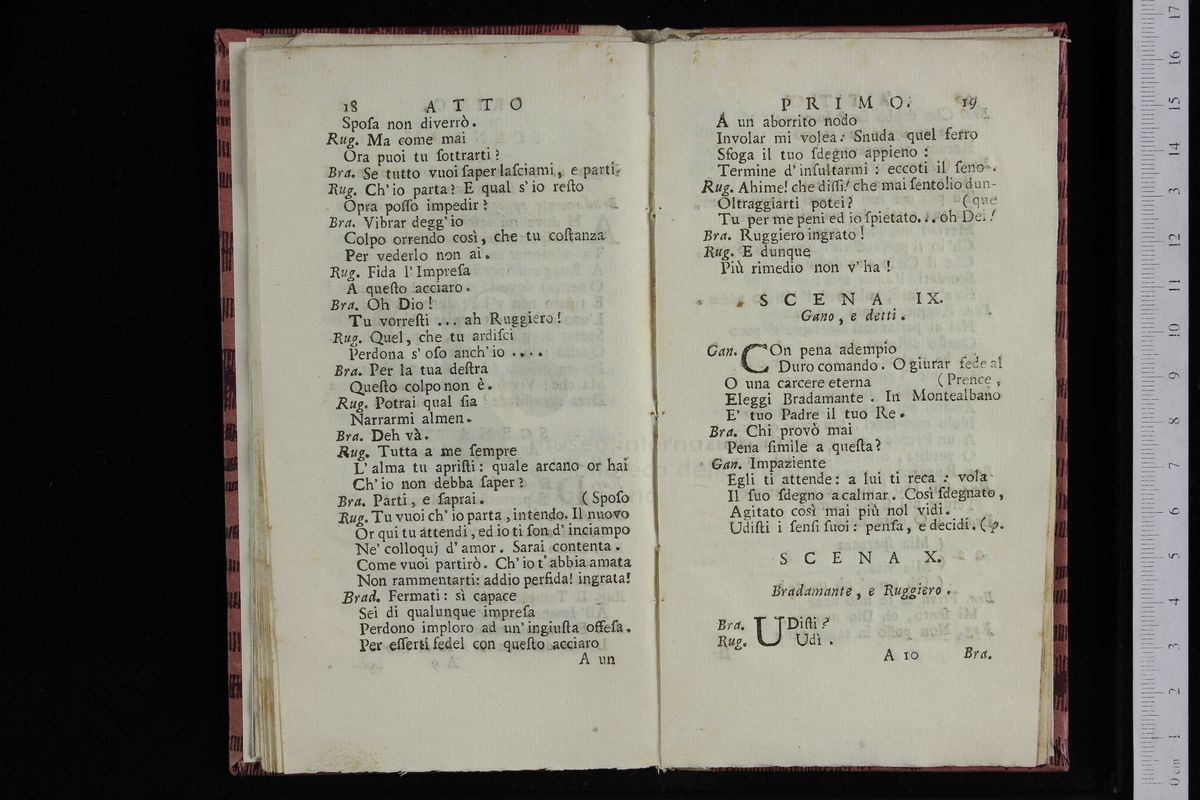 18 ATTO
Spoſa non diverrò.
Rug. Ma come mai
Ora puoi tu ſottrarti?
Bra. Se tutto vuoi ſaper laſciami, e parti.
Rug. Ch' io parta? E qual s' io reſto
Opra poſſo impedir?
Bra. Vibrar degg' io
Colpo orrendo così, che tu coſtanza
Per vederlo non ai.
Rug. Fida l' Impreſa
A queſto acciaro.
Bra. Oh Dio!
Tu vorreſti ... ah Ruggiero!
Rug. Quel, che tu ardiſci
Perdona s' oſo anch' io ....
Bra. Per la tua deſtra
Queſto colpo non è.
Rug. Potrai qual ſia
Narrarmi almen.
Bra. Deh và.
Rug. Tutta a me ſempre
L' alma tu apriſti: quale arcano or hai
Ch' io non debba ſaper?
Bra. Parti, e ſaprai. (Spoſo
Rug. Tu vuoi ch' io parta, intendo. Il nuovo
Or qui tu attendi, ed io ti ſon d' inciampo
Ne' colloquj d' amor. Sarai contenta.
Come vuoi partirò. Ch' io t' abbia amata
Non rammentarti: addio perfida! ingrata!
Brad. Fermati: sì capace
Sei di qualunque impreſa
Perdono imploro ad un' ingiuſta offeſa.
Per eſſerti fedel con queſto acciaro
A un
PRIMO. 19
A un aborrito nodo
Involar mi volea: Snuda quel ferro
Sfoga il tuo ſdegno appieno:
Termine d' inſultarmi: eccoti il ſeno.
Rug. Ahime! che diſſi! che mai ſento! io dun-
Oltraggiarti potei? (que
Tu per me peni ed io ſpietato... oh Dei!
Bra. Ruggiero ingrato!
Rug. E dunque
Più rimedio non v' ha!
SCENA IX.
Gano, e detti.
Gan. COn pena adempio
Duro comando. O giurar fede al
O una carcere eterna (Prence,
Eleggi Bradamante. In Montealbano
E' tuo Padre il tuo Re.
Bra. Chi provò mai
Pena ſimile a queſta?
Gan. Impaziente
Egli ti attende: a lui ti reca: vola
Il ſuo ſdegno a calmar. Così ſdegnato,
Agitato così mai più nol vidi.
Udiſti i ſenſi ſuoi: penſa, e decidi. (p.
SCENA X.
Bradamante, e Ruggiero.
Bra. UDiſti?
Rug. Udì.
A 10 Bra.